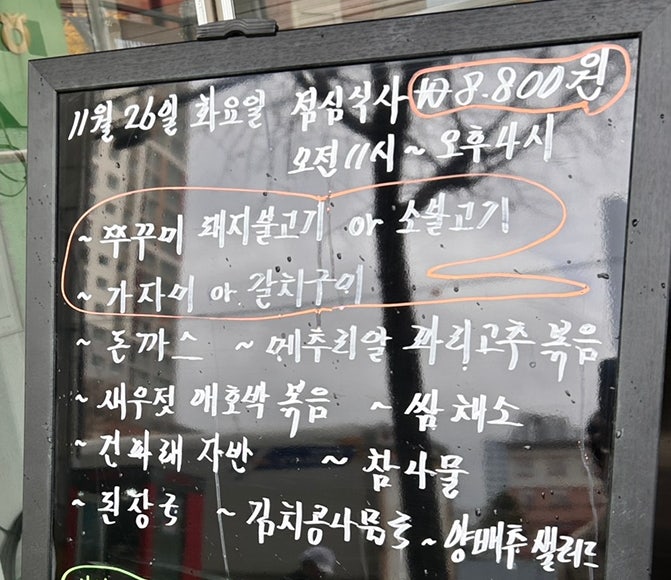 11월 26일 화요일 점심식사 ₩ 8.800원
오전 11시 ~ 오후 4시
~ 쭈꾸미 돼지불고기 or 소불고기
~ 가자미 or 갈치구이
~ 돈까스 ~ 메추리알 꽈리고추볶음
~ 새우젓 애호박볶음 ~ 쌈채소
~ 건파래 자반 ~ 참나물
~ 된장국 ~ 김치콩나물국 ~ 양배추샐러드